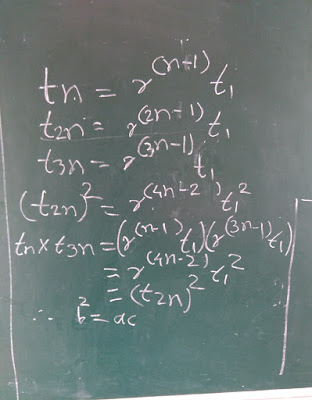 tn = r^(n-1) t₁
t2n = r^(2n-1) t₁
t3n = r^(3n-1) t₁
(t2n)² = r^(4n-2) t₁²
tn × t3n = (r^(n-1) t₁)(r^(3n-1) t₁)
= r^(4n-2) t₁²
= (t2n)²
∴ b² = ac